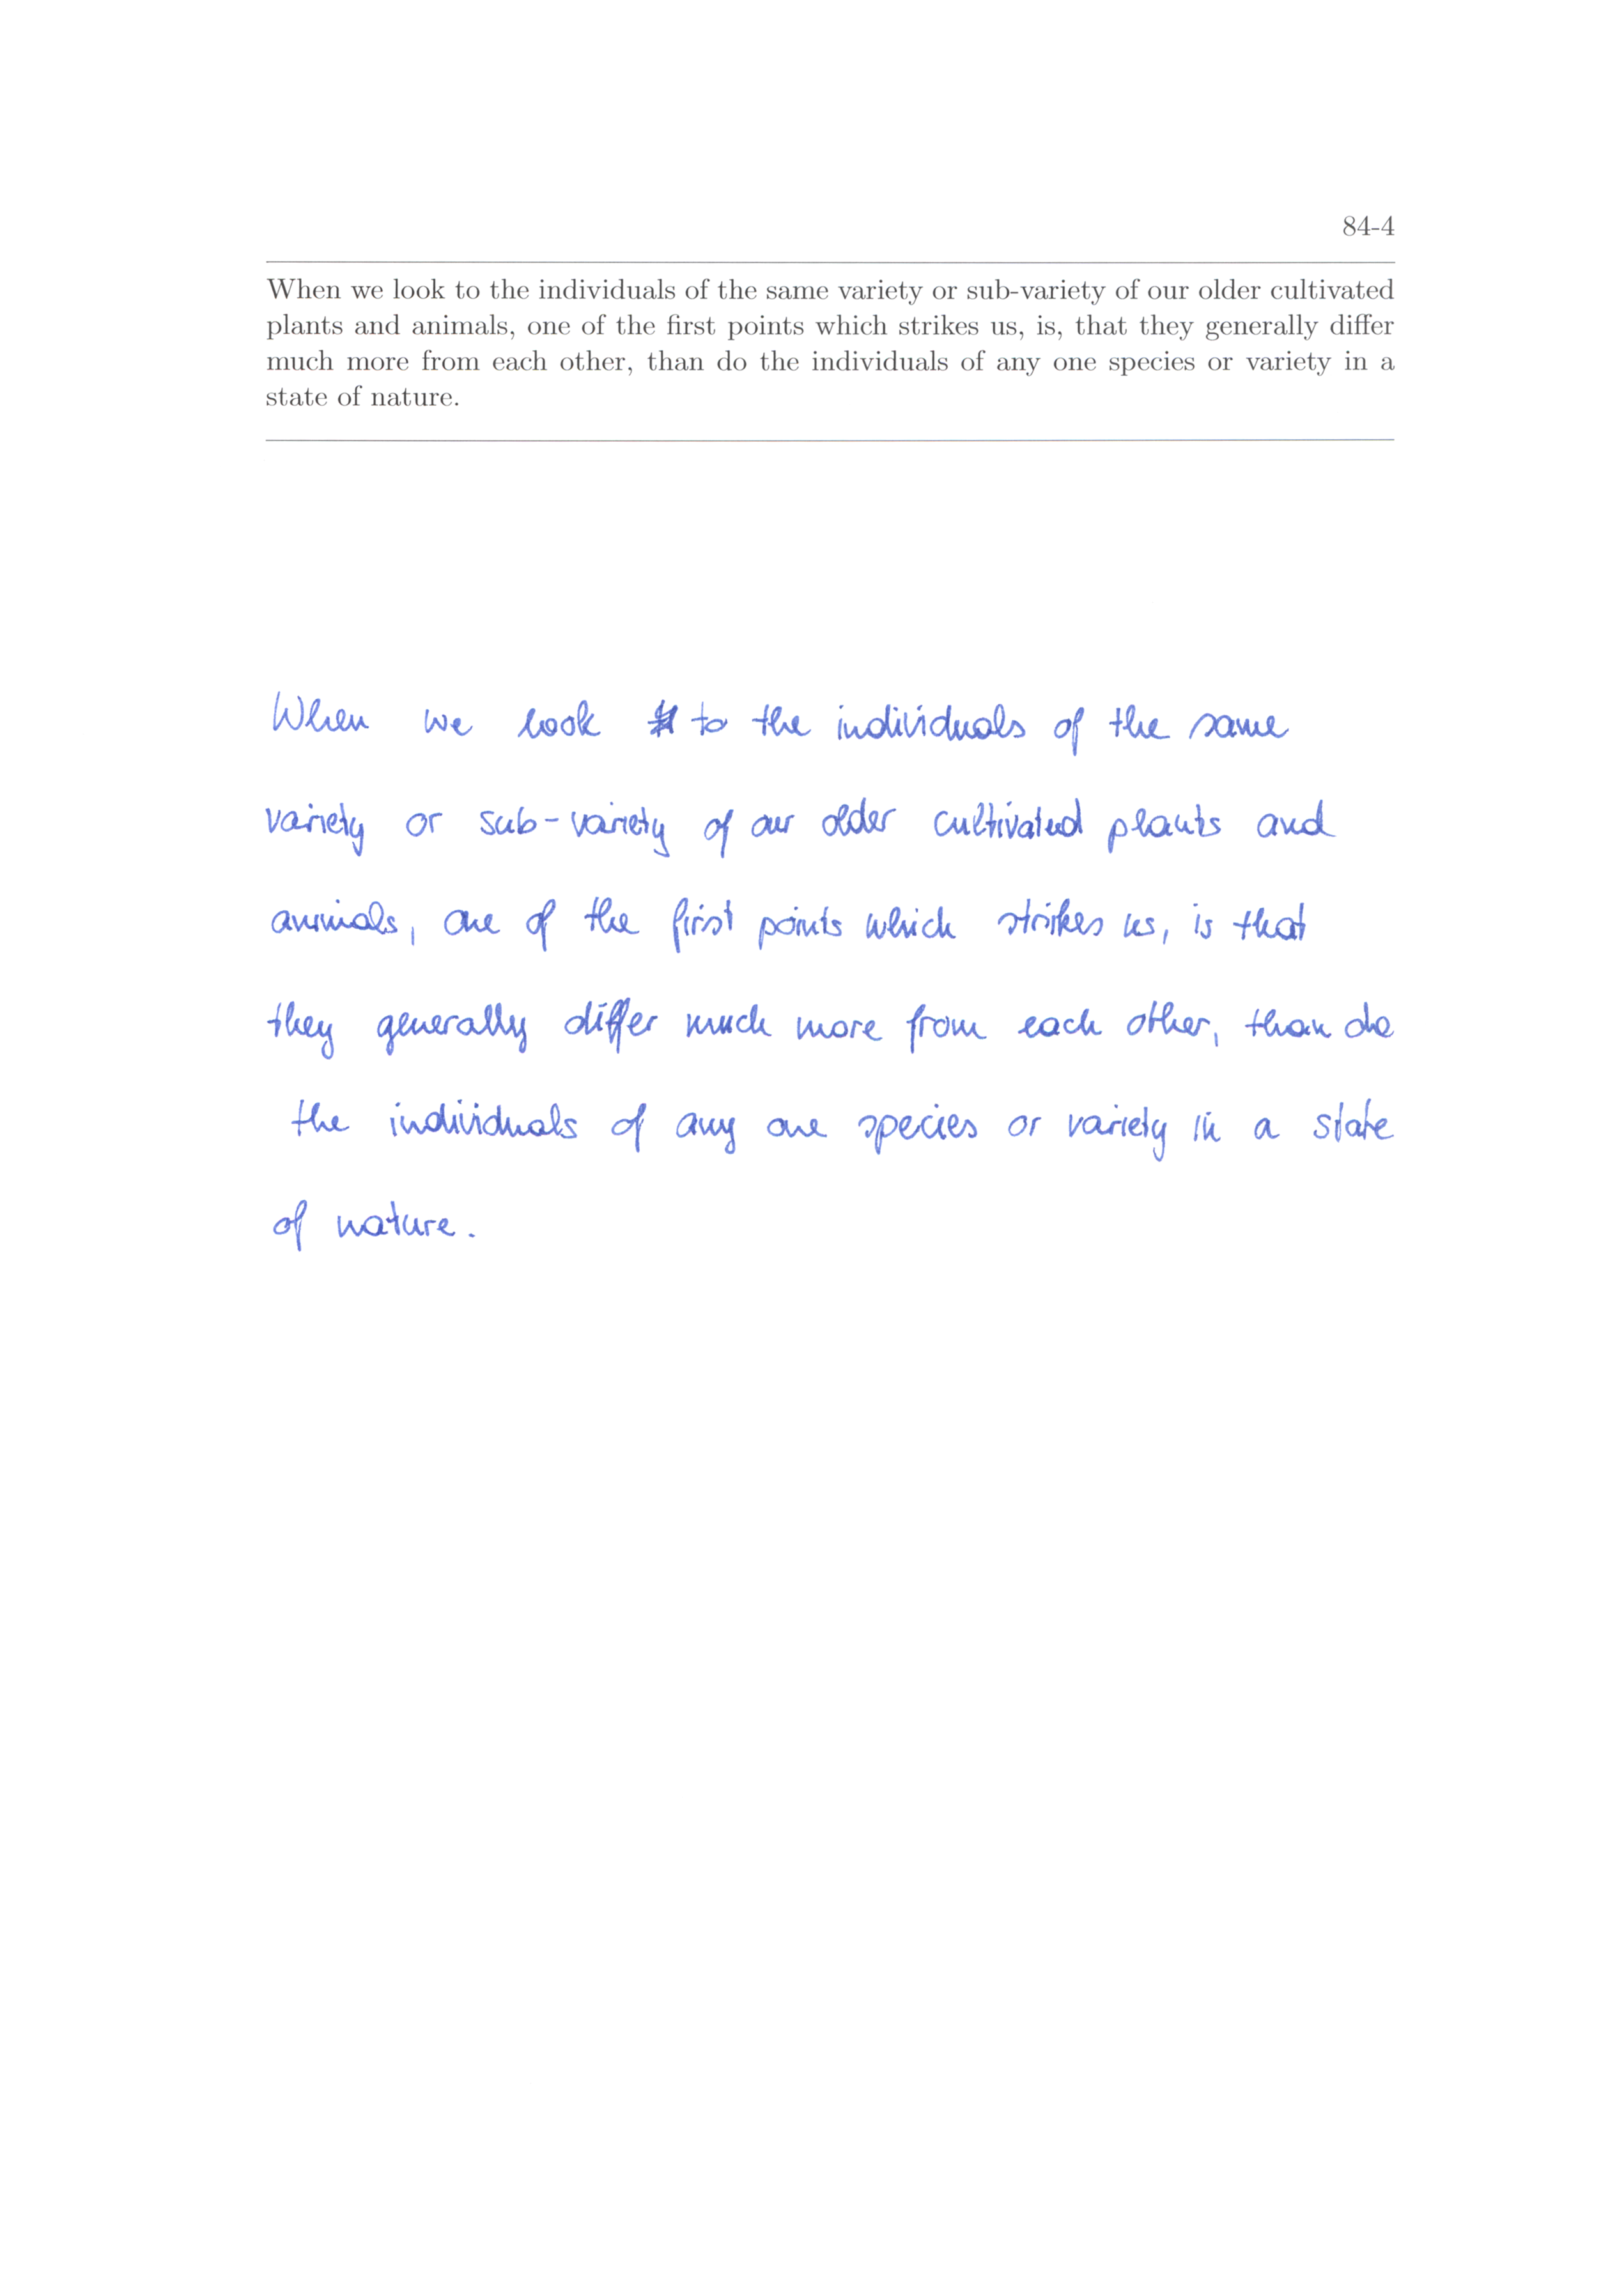 84-4
When we look to the individuals of the same variety or sub-variety of our older cultivated
plants and animals, one of the first points which strikes us, is, that they generally differ
much more from each other, than do the individuals of any one species or variety in a
state of nature.
When we look to the individuals of the same
variety or sub-variety of our older cultivated plants and
animals, one of the first points which strikes us, is that
they generally differ much more from each other, than do
the individuals of any one species or variety in a state
of nature.